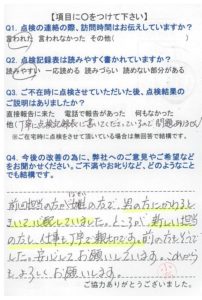 【項目に○をつけて下さい】
Q1. 点検の連絡の際、訪問時間はお伝えしていますか?
言われた 言われなかった その他( )
Q2. 点検記録表は読みやすく書かれていますか?
読みやすい 一応読める 読みづらい 読めない部分がある
Q3. ご不在時に点検させていただいた後、点検結果の
ご説明はありましたか?
直接報告に来た 電話で報告があった 何もなかった
他(
※ご在宅時に点検をさせて頂いている場合は無回答で結構です。
Q4. 今後の改善の為に、弊社へのご意見やご希望など
をお聞かせください。ご不満やお叱りなど、どのようなこと
でも結構です。
前回担当の方が
の方で、男の方にかわると
きいて心配していました。ところが、新しい担当
の方も、仕事も丁寧で親切です。前の方もそうで
した。安心してお願いしています。これから
もよろしくお願いします。
ご協力ありがとうございました。